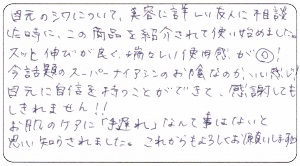 目元のシワについて、美容に詳しい友人に相談
した時に、この商品を紹介されて使い始めました。
スッと伸びが良く、瑞々しい使用感が◎!
今話題のスーパーナイアシンのお陰なのか、いい感じ!
目元に自信を持つことができて、感謝しても
しきれません!!
お肌のケアに「手遅れ」なんて事はないと
思い知らされました。これからもよろしくお願いします